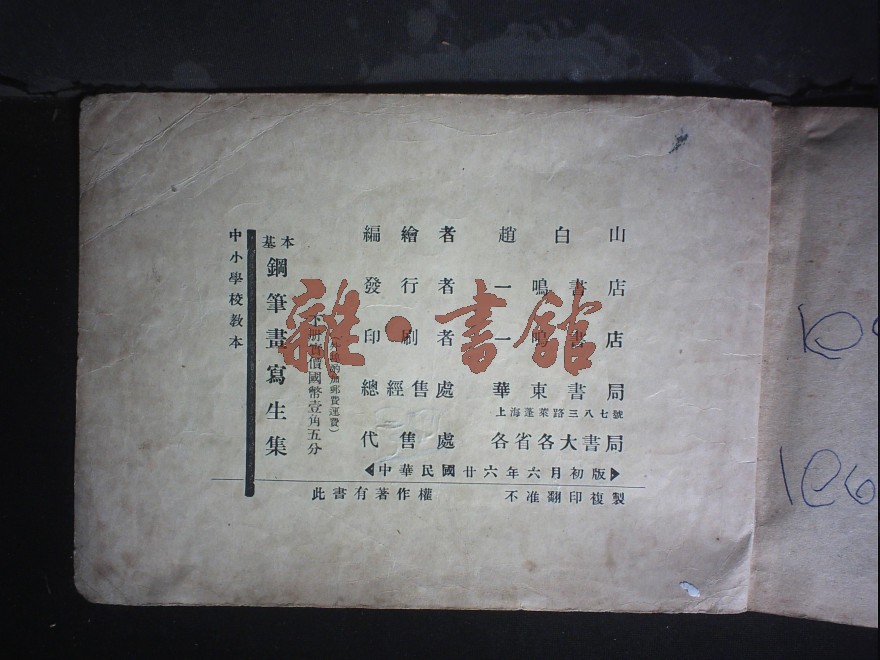 編繪者 趙白山
發行者 一鳴書店
印刷者 一鳴書店
總經售處 華東書局
上海蓬萊路三八七號
代售處 各省各大書局
中華民國廿六年六月初版
此書有著作權 不准翻印複製
中小學校教本
基本
鋼筆畫寫生集
實價國幣壹角五分
郵費運費)
雜·書館